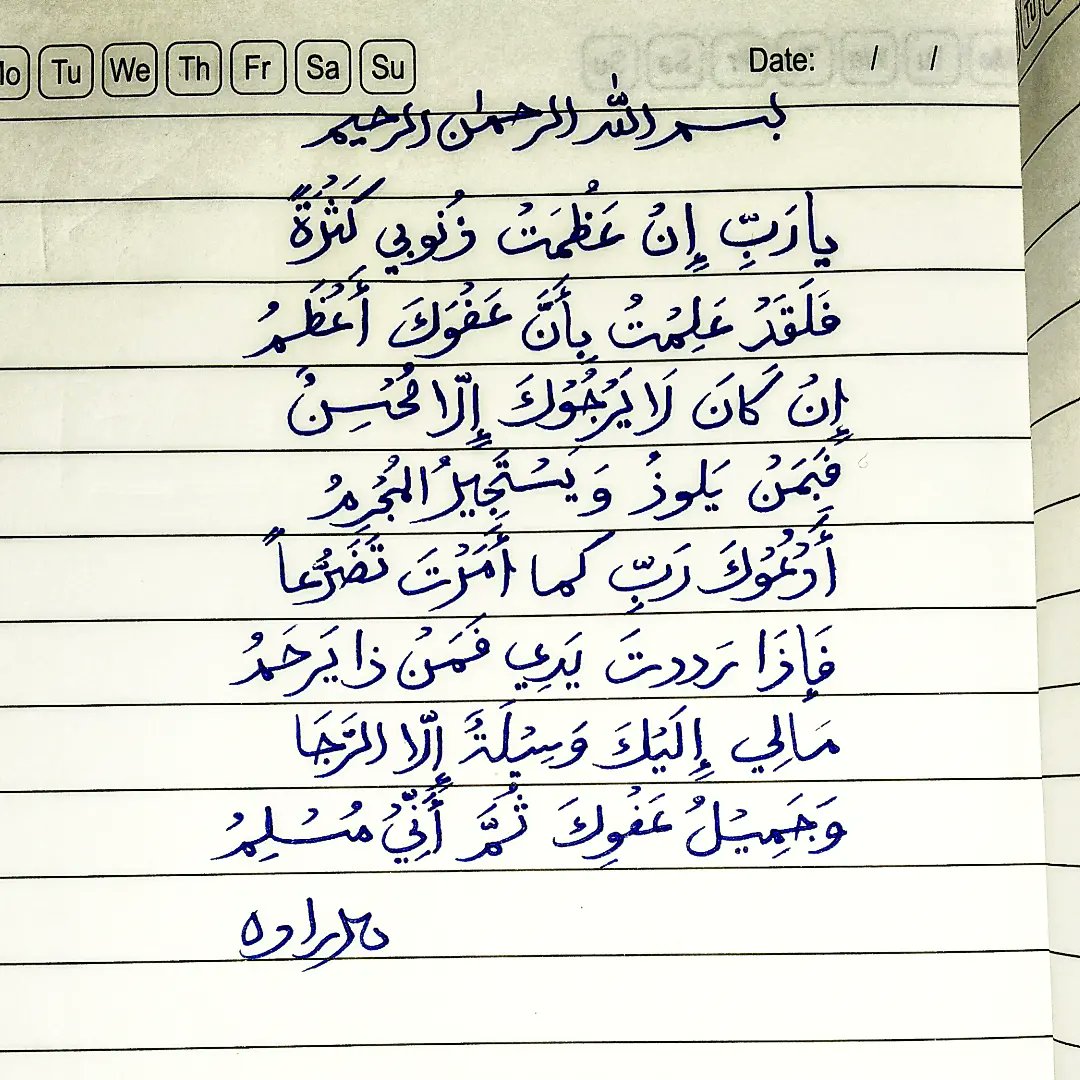 Mo Tu We Th Fr Sa Su Date: / /
بسم الله الرحمٰن الرحيم
يا رَبِّ إِنْ عَظُمَتْ ذُنُوبي كَثْرَةً
فَلَقَدْ عَلِمْتُ بِأَنَّ عَفْوَكَ أَعْظَمُ
إِنْ كَانَ لَا يَرْجُوْكَ إِلّا مُحْسِنٌ
فَبِمَنْ يَلوذُ وَيَسْتَجِيرُ المُجْرِمُ
أَدْعُوْكَ رَبِّ كما أَمَرْتَ تَضَرُّعاً
فَإِذَا رددتَ يَدِي فَمَنْ ذا يَرحَمُ
مَالِي إِلَيْكَ وَسِيْلَةٌ إِلّا الرَّجَا
وَجَمِيْلُ عَفْوِكَ ثُمَّ أَنِّيْ مُسْلِمُ